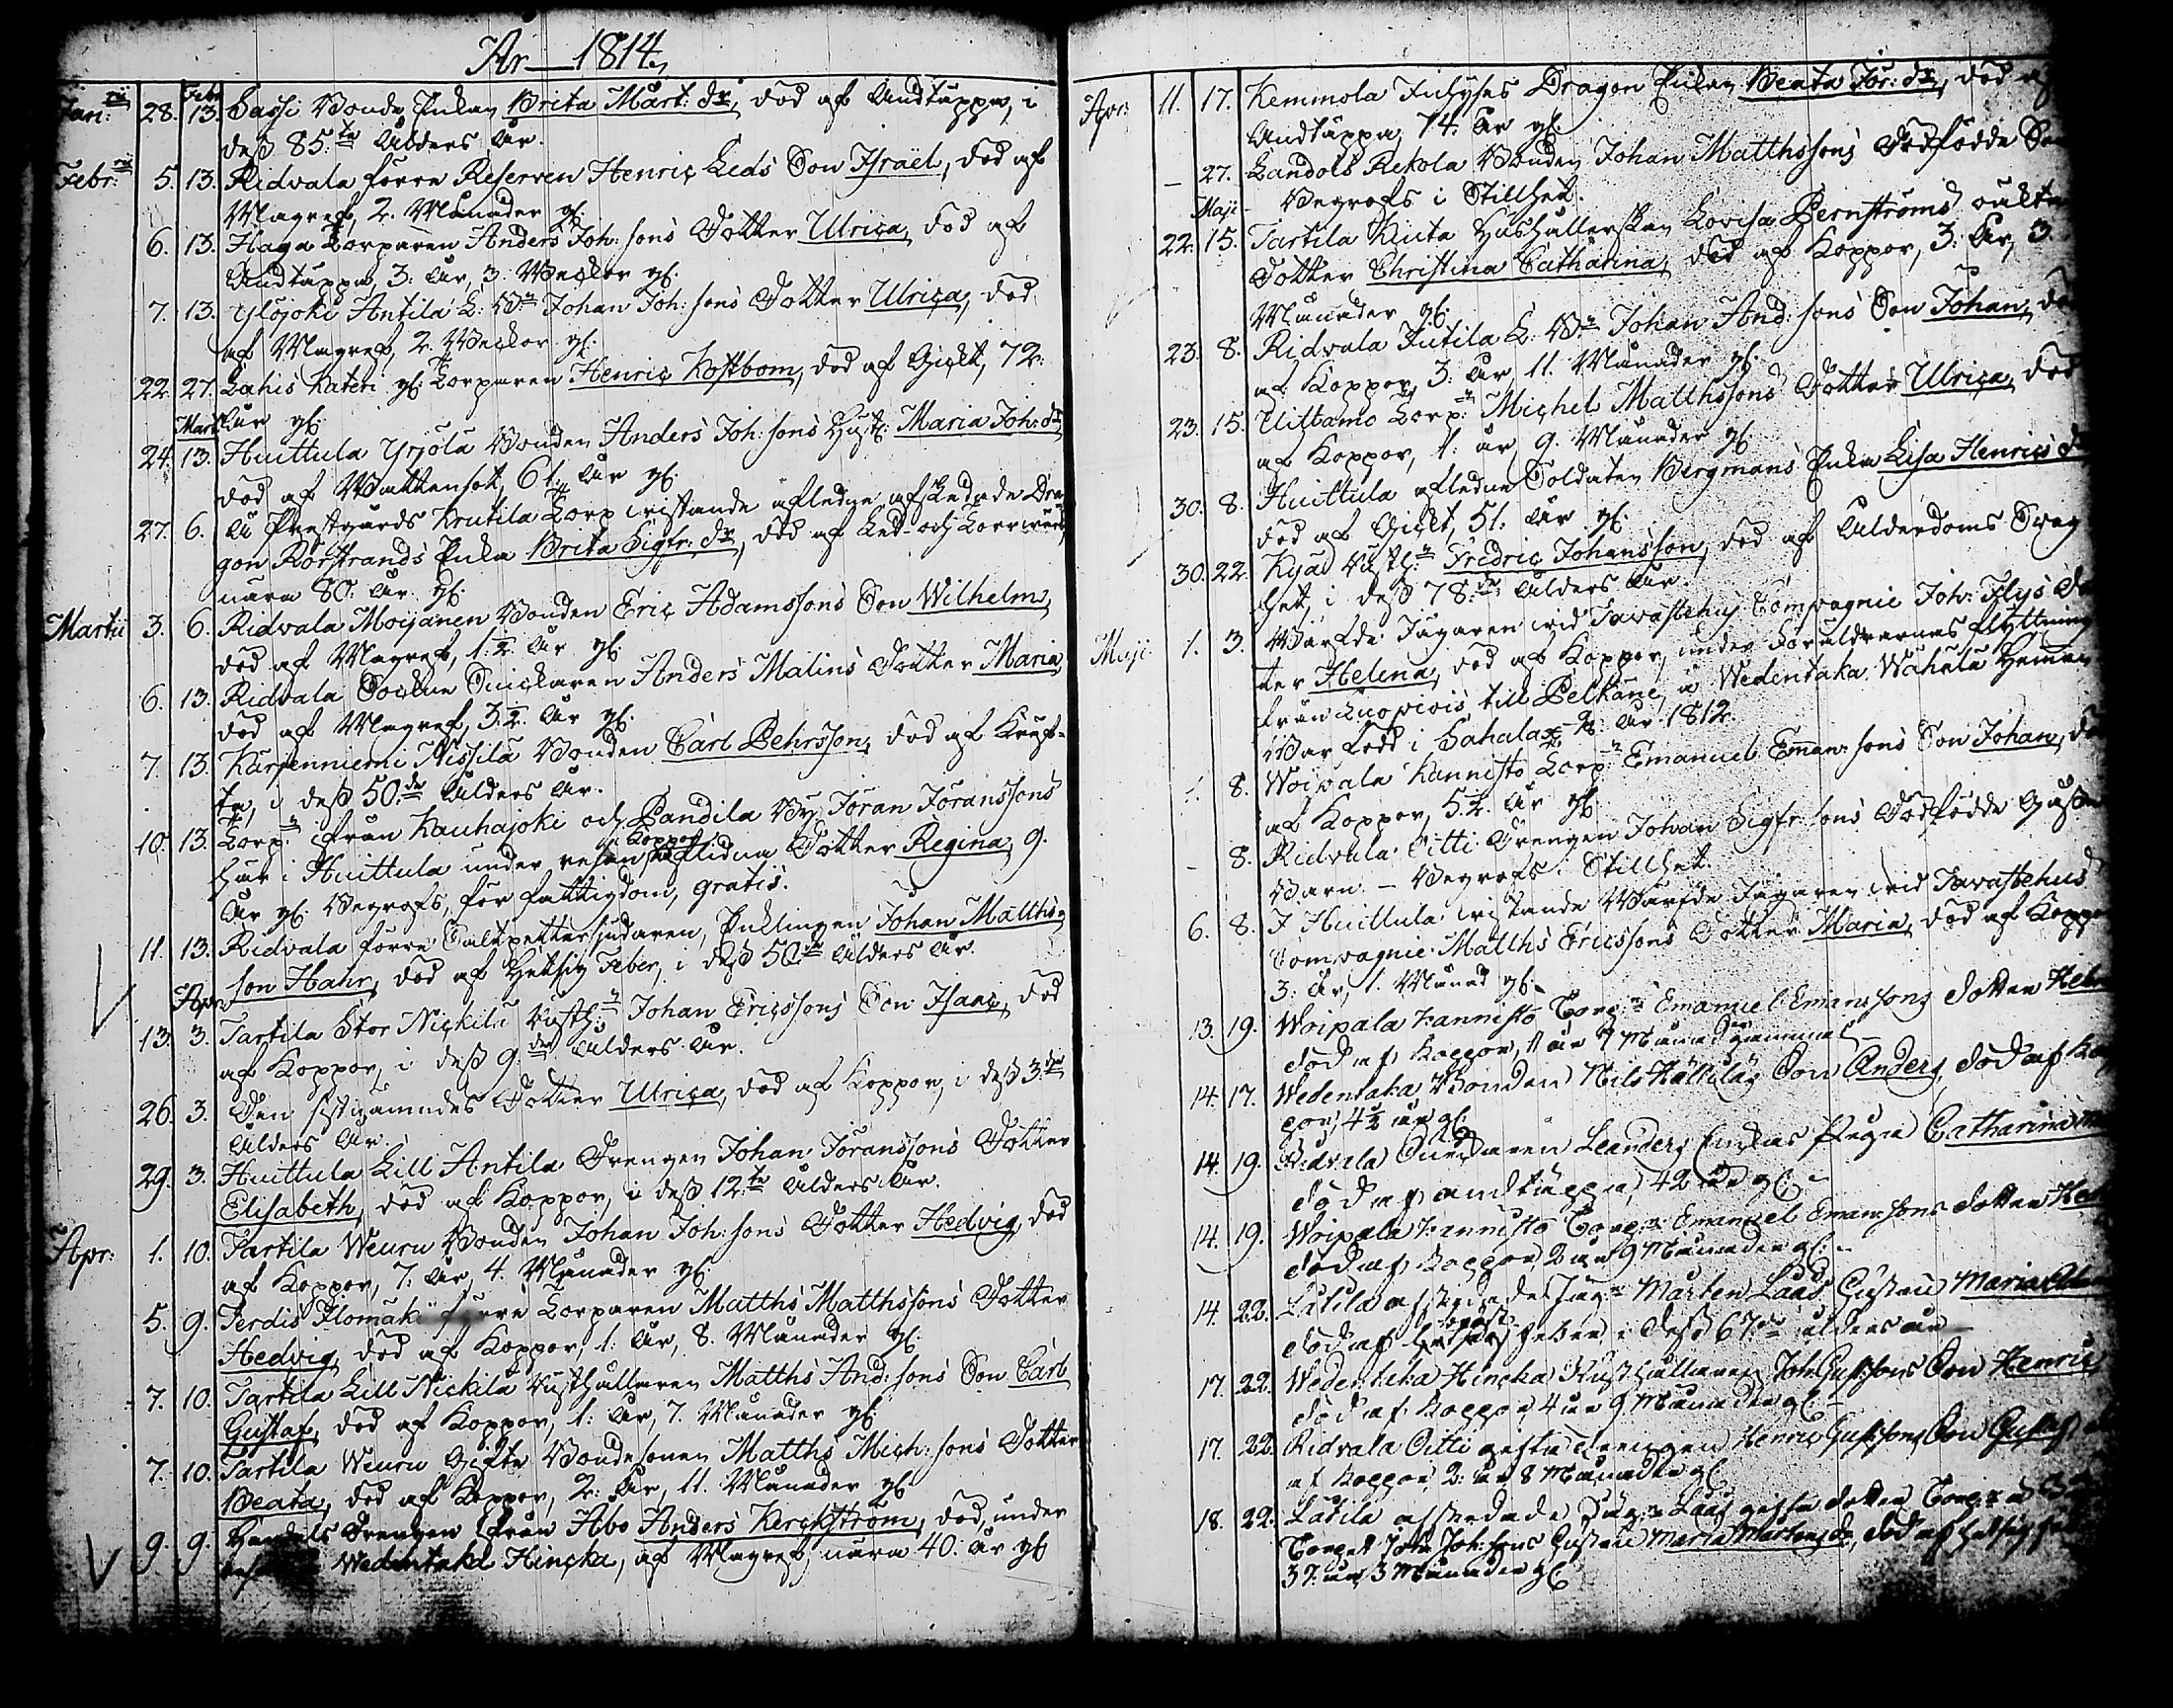 År 1814.
Febr
Jan:rii 28. 13. Sassi Bonde Enkan Brita Mårt:dr, död af Andtäppa, i
dess 85:te Ålders År.
Febr:rii 5. 13. Ridvala förre Reserven Henric Leds Son Israël, död af
Magref, 2. Månader gl:
6. 13. Haga Torparen Anders Joh:sons Dotter Ulrica, död af
Andtäppa, 3. År, 3. Veckor gl:
7. 13. Ylöjoki Antila L: B:n Johan Joh:sons Dotter Ulrica, död
af Magref, 2. Veckor gl:
22. 27. Lahis Kateri gl: Torparen Henric Kostbom, död af Gickt, 72.
Mart. År gl:
24. 13. Huittula Yrjölä Bonden Anders Joh:sons Hustr: Maria Joh:dr,
död af Vattensot, 61. År gl:
27. 6. Å Prestgårds Krutila Torp vistande afledne afskedade Dra-
gon Rörstrands Enka Brita Sigfr:dr, död af Led- och Torrverk,
nära 80. År gl:
Martii 3. 6. Ridvala Moijanen Bonden Eric Adamssons Son Wilhelm,
död af Magref, 1.½ År gl:
6. 13. Ridvala Sockne Snickaren Anders Malins Dotter Maria,
död af Magref, 3.½ År gl:
7. 13. Kärjenniemi Nissilä Bonden Carl Pehrsson, död af Kräf-
ta, i dess 50:de Ålders År.
10. 13. Torp:n från Kauhajoki och Pandila By Jöran Jöranssons
här i Huittula under resan af Koppor aflidna Dotter Regina, 9.
År gl: Begrofs, för fattigdom, gratis.
11. 13. Ridvala förre Saltpettersjudaren, Enklingen Johan Matths-
son Hahr, död af Hetsig Feber, i dess 50:de Ålders År.
Apr:
13. 3. Tartila Stor Nickilä Rusth:n Johan Ericssons Son Isaac, död
af Koppor, i dess 9:de Ålders År.
26. 3. Den sistnämndes Dotter Ulrica, död af Koppor, i dess 3:de
Ålders År.
29. 3. Huittula Lill Antila Drengen Johan Jöranssons Dotter
Elisabeth, död af Koppor, i dess 12:te Ålders År.
Apr: 1. 10. Tartila Weuru Bonden Johan Joh:sons Dotter Hedvig, död
af Koppor, 7. År, 4. Månader gl:
5. 9. Jerdis Flomäki förre Torparen Matths Matthssons Dotter
Hedvig, död af Koppor, 1. År, 8. Månader gl:
7. 10. Tartila Lill Nickilä Rusthållaren Matths And:sons Son Carl
Gustaf, död af Koppor, 1. År, 7. Månader gl:
7. 10. Tartila Weuru Gifte Bondesonen Matths Mich:sons Dotter
Beata, död af Koppor, 2. År, 11. Månader gl:
9. 9. Handels Drengen från Åbo Anders Kerckström, död, under
Wedentaka Hincka, af Magref, nära 40. År gl:
Apr: 11. 17. Kemmola Juhyses Dragon Enkan Beata Jör:dr, död af
Andtäppa, 74. År gl:
– 27. Landols Rekola Bonden Johan Matthssons Dödfödde Son
Begrofs i Stillhet.
Maji
22. 15. Tartila Kiuta Hushållerskan Lovisa Bernströms oäkta
Dotter Christina Catharina, död af Koppor, 3. År, 3.
Månader gl:
23. 8. Ridvala Jutila L: B:n Johan And:sons Son Johan, död
af Koppor, 3. År, 11. Månader gl:
23. 15. Uittamo Torp:n Michel Matthssons Dotter Ulrica, död
af Koppor, 1. år, 9. Månader gl:
30. 8. Huittula afledne Soldaten Bergmans Enka Lisa Henrics dr
död af Gickt, 51. År gl:
30. 22. Kyas Rusth:n Fredric Johansson, död af Ålderdoms Svag-
het, i dess 78:de Ålders År.
Maji 1. 3. Värfde Jägaren vid Tavastehus Compagnie Joh: Flys Dot-
ter Helena, död af Koppor, under Föräldrarnas flyttning
från Luopiois till Pelkäne, å Wedentaka Wähälä Heman
Var född i Sahalax År 1812.
1. 8. Woivala Kannisto Torp:n Emanuel Eman:sons Son Johan, död
af Koppor, 5½. År gl:
– 8. Ridvala Pitti Drengen Johan Sigfr:sons Dödfödde Gosse
Barn – Begrofs i Stillhet.
6. 8. I Huittula vistande Värfde Jägaren vid Tavastehus
Compagnie Matths Ericssons Dotter Maria, död af Koppor
3. År, 1. Månad gl:
13. 19. Woipala Kannisto Torp:n Emanuel Emanssons dotter
död af Koppor, 11 år 9 Månader gammal
14. 17. Wedentaka Bonden Nils Hällilä Son Anders, död af Kop-
por, 4½ år gl:
14. 19. Ridvala Leanders Enkas Piga Catharina
död af andtäppa, 42 år gl:
14. 19. Woipala Kannisto Torp:n Emanuel Eman:sons dotter
död af Koppor, 2 år 9 Månader gl:
14. 22. Lätilä afskedade Jäg:n Mårten Laads Hustru Maria
död af feber i dess 67:de ålders år
17. 22. Wedentaka Hincka Rusthållaren Joh: Gustssons Son Henric
död af Koppor 4 år 9 Månader gl:
17. 22. Ridvala Pitti gifta drengen Henric Gustssons Son Gustaf
af Koppor, 2: år 8 Månader gl:
18. 22. Lätilä afskedade Jäg:n Laas gifta dotter
Torpet Joh: Joh:sons Hustru Maria Mårtens dr, död af hetsig feber
37: år 3 Månader gl: